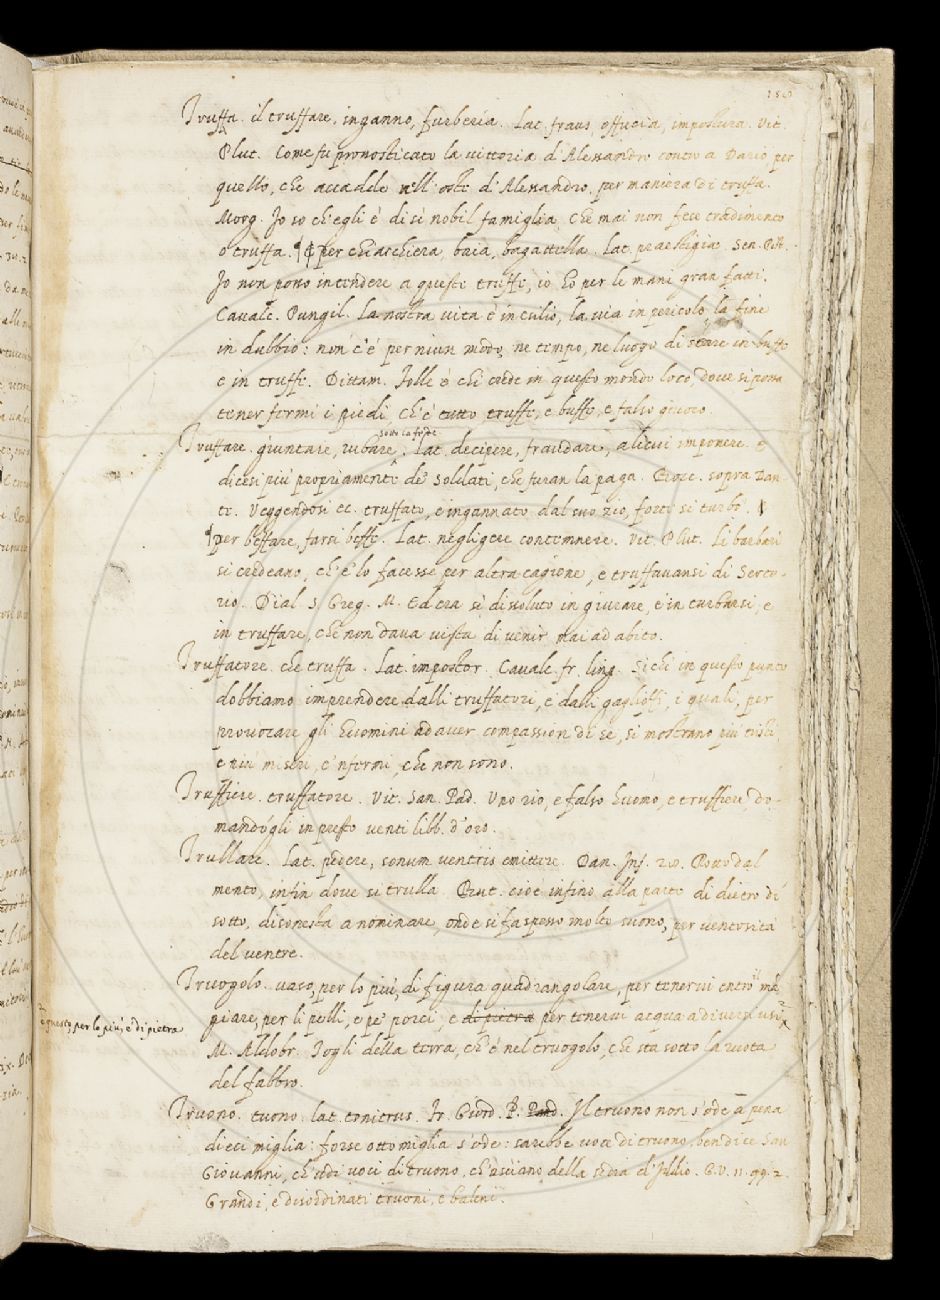 Truffa. il truffare, inganno, furberia. Lat. fraus, offucia, impostura. Vit.
Plut. Come fu pronosticato la vittoria d'Alessandro contro a Dario per
quello, che accadde nell'oste d'Alessandro per maniera di truffa.
Morg. Io so ch'egli è di sì nobil famiglia che mai non fece tradimento
o truffa. ¶ per chiacchiera, baia, bagattella. Lat. praestigia. Sen. Pist.
Io non posso intendere a queste truffe, io ho per le mani gran fatti.
Cavalc. Pungil. la nostra vita è in esilio, la via in pericolo la fine
in dubbio: non c'è per niun modo, ne tempo, ne luogo di stare in buffe
e in truffe. Dittam. Folle è chi crede in questo mondo loco, dove si possa
tener fermi i piedi, ch'è tutto truffe, e buffe, e falso giuoco.
sotto la fede
Truffare. giuntare, rubare. Lat. decipere, fraudare, alicui imponere. E
dicesi più propriamente de' soldati, che furan la paga. Bocc. sopra Dan-
te. Veggendosi ec. truffato, e ingannato dal suo zio, forte si turbò.
¶ per beffare, farsi beffe. Lat. negligere contemnere. Vit. Plut. Li barbari
si credeano, ch'e' lo facesse per altra cagione, e truffavansi di Serto-
rio. Dial. S. Greg. M. Ed era sì dissoluto in giurare, e in turbarsi, e
in truffare, che non dava vista di venir mai ad abito.
Truffatore. che truffa. Lat. impostor. Cavalc. fr. ling. Sichè in questo punto
dobbiamo imprendere dalli truffatori, e dalli gaglioffi, i quali, per
provocare gli huomini ad aver compassion di se, si mostrano più tristi
e più miseri, e 'nfermi, che non sono.
Truffiere. truffatore. Vit. San. Pad. Uno rio, e falso huomo, e truffiere do-
mandògli in presto venti libb. d'oro.
Trullare. Lat. pedere, sonum ventris emittere. Dan. Inf. 28. Rotto dal
mento, infin dove si trulla. But. cioè infino alla parte di dietro di
sotto, disonesta a nominare onde si fa spesso molto suono, per ventosità
del ventre.
Truogolo. vaso, per lo più, di figura quadrangolare, per tenervi entro il ma-
giare, per li polli, e pe' porci, e di pietra per tenervi acqua a diversi usi
e questo, per lo più, è di pietra
M. Aldobr. Togli della terra, ch'è nel truogolo, che sta sotto la ruota
del fabbro.
Truono. tuono. lat. tonitrus. Fr. Giord. P. Pred. Il truono non s'ode a pena
dieci miglia: forse otto miglia s'ode: sarebbe voce di truono, ben dice San
Giovanni, ch'udì voci di truono, ch'uscìano della sedia d'Iddio. G.V. 11. 99. 2.
Grandi, e disordinati truoni, e baleni.